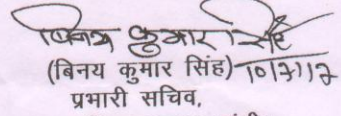 बिनय कुमार सिंह
(बिनय कुमार सिंह)
प्रभारी सचिव,